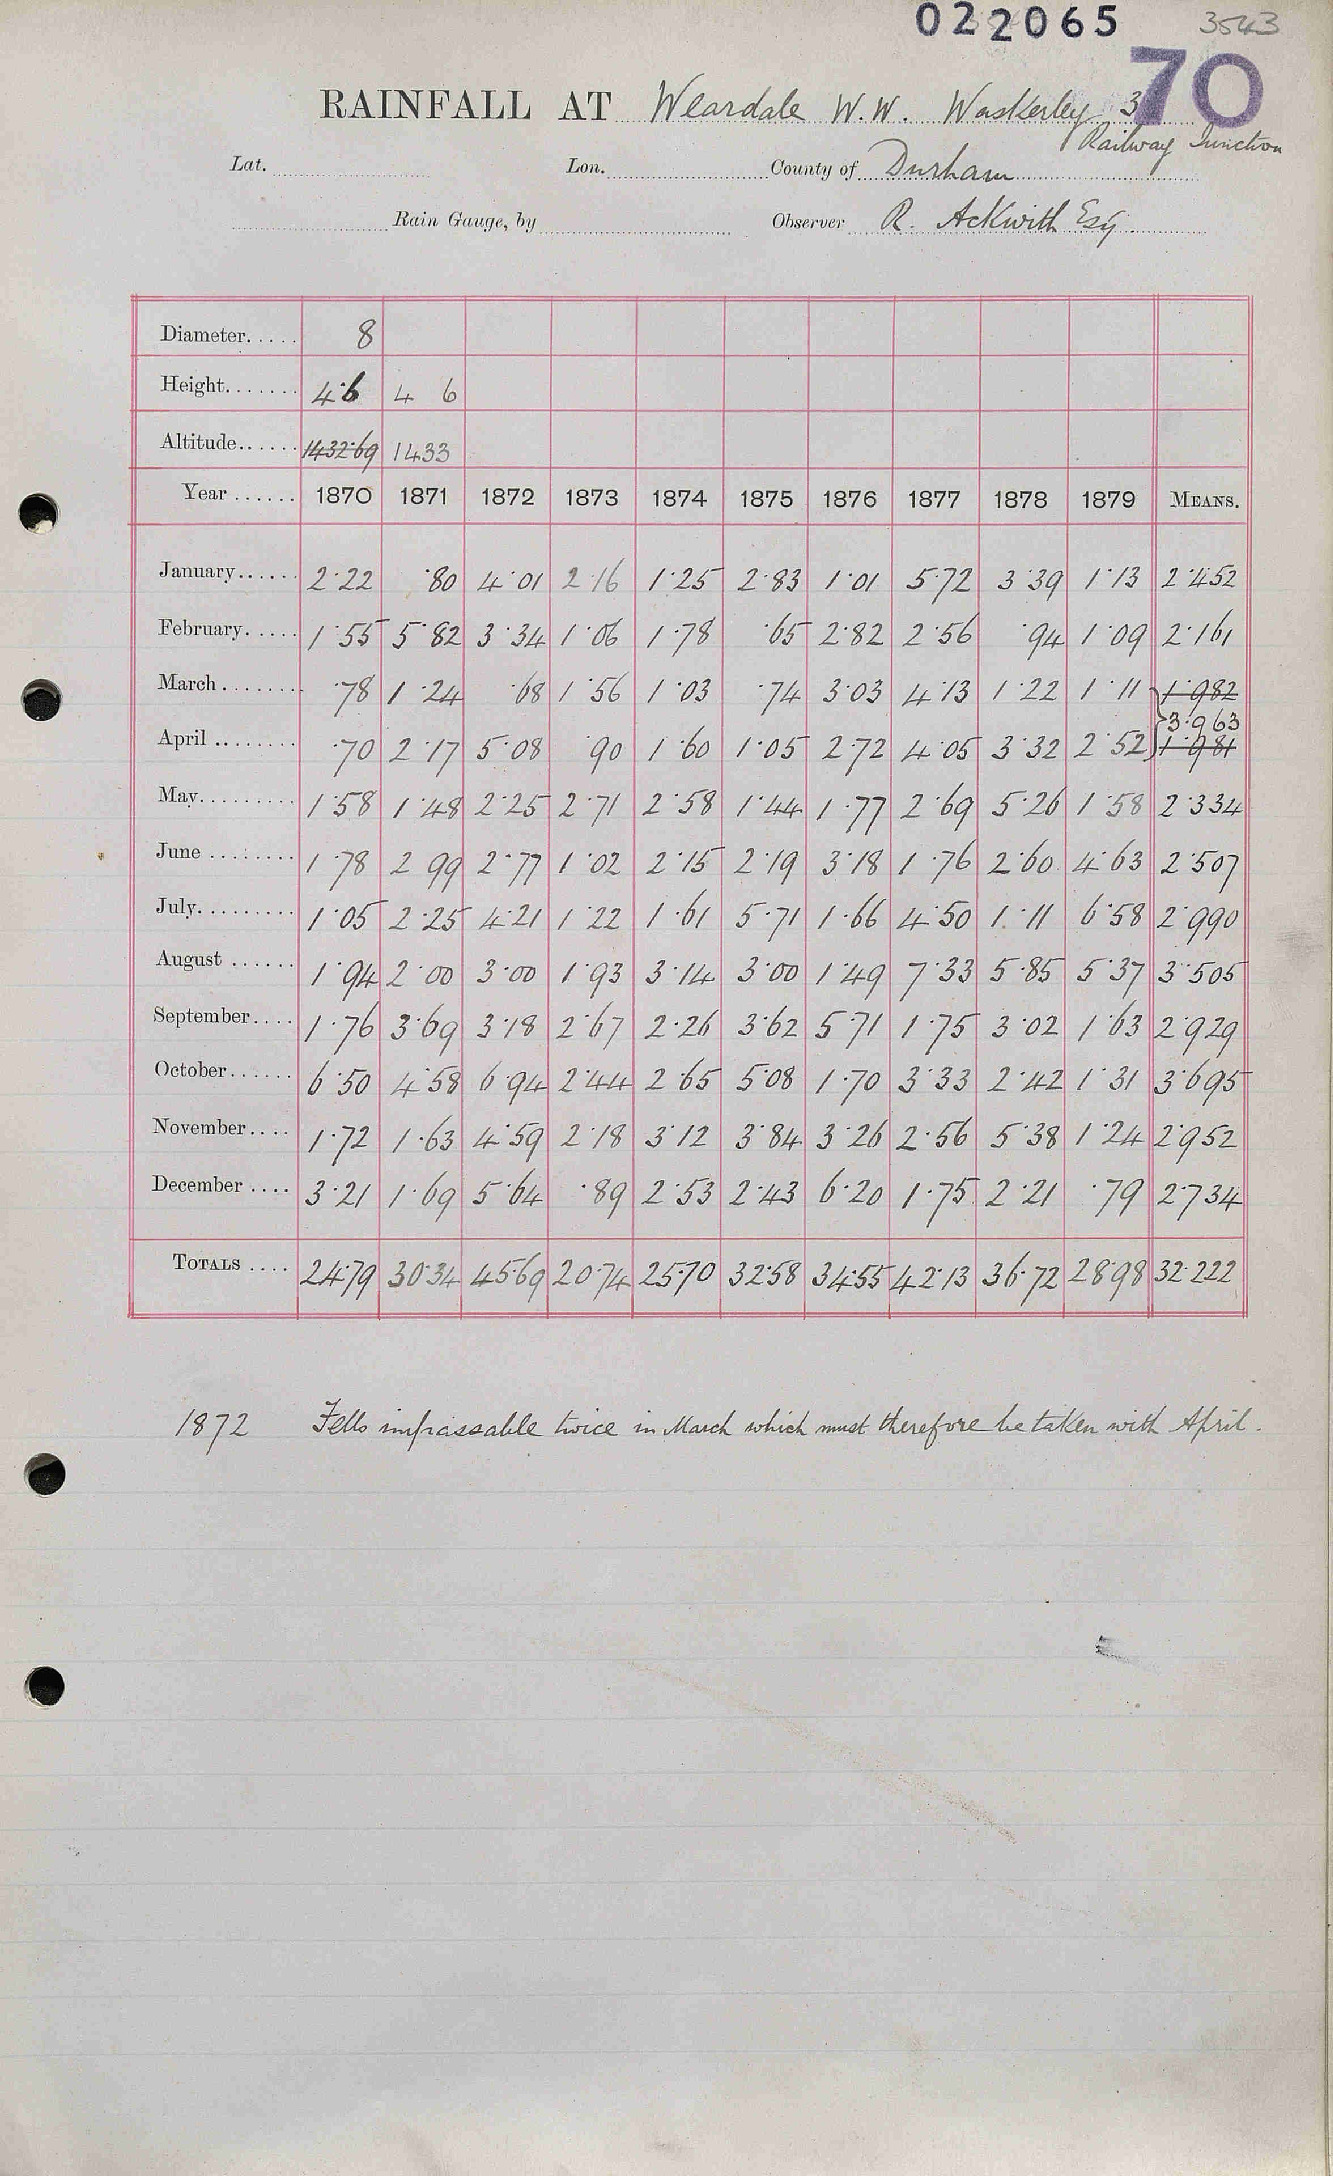 022065 3543
70
RAINFALL AT Weardale W.W. Waskerley 3
Railway Junction
Lat. Lon. County of Durham
Rain Gauge, by Observer R. Ackwith Esq
Diameter..... 8
Height....... 4·6 4 6
Altitude...... 1432·69 1433
Year ...... 1870 1871 1872 1873 1874 1875 1876 1877 1878 1879 MEANS.
January...... 2·22 ·80 4·01 2·16 1·25 2·83 1·01 5·72 3·39 1·13 2·452
February..... 1·55 5·82 3·34 1·06 1·78 ·65 2·82 2·56 ·94 1·09 2·161
March ........ ·78 1·24 ·68 1·56 1·03 ·74 3·03 4·13 1·22 1·11 1·982
3·963
April .......... ·70 2·17 5·08 ·90 1·60 1·05 2·72 4·05 3·32 2·52 1·981
May.......... 1·58 1·48 2·25 2·71 2·58 1·44 1·77 2·69 5·26 1·58 2·334
June ......... 1·78 2·99 2·77 1·02 2·15 2·19 3·18 1·76 2·60 4·63 2·507
July.......... 1·05 2·25 4·21 1·22 1·61 5·71 1·66 4·50 1·11 6·58 2·990
August ...... 1·94 2·00 3·00 1·93 3·14 3·00 1·49 7·33 5·85 5·37 3·505
September.... 1·76 3·69 3·18 2·67 2·26 3·62 5·71 1·75 3·02 1·63 2·929
October...... 6·50 4·58 6·94 2·44 2·65 5·08 1·70 3·33 2·42 1·31 3·695
November.... 1·72 1·63 4·59 2·18 3·12 3·84 3·26 2·56 5·38 1·24 2·952
December .... 3·21 1·69 5·64 ·89 2·53 2·43 6·20 1·75 2·21 ·79 2·734
TOTALS .... 24·79 30·34 45·69 20·74 25·70 32·58 34·55 42·13 36·72 28·98 32·222
1872 Fells impassable twice in March which must therefore be taken with April.